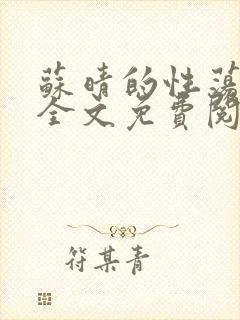 蘇晴的性蕩
全文免費閱
符某青